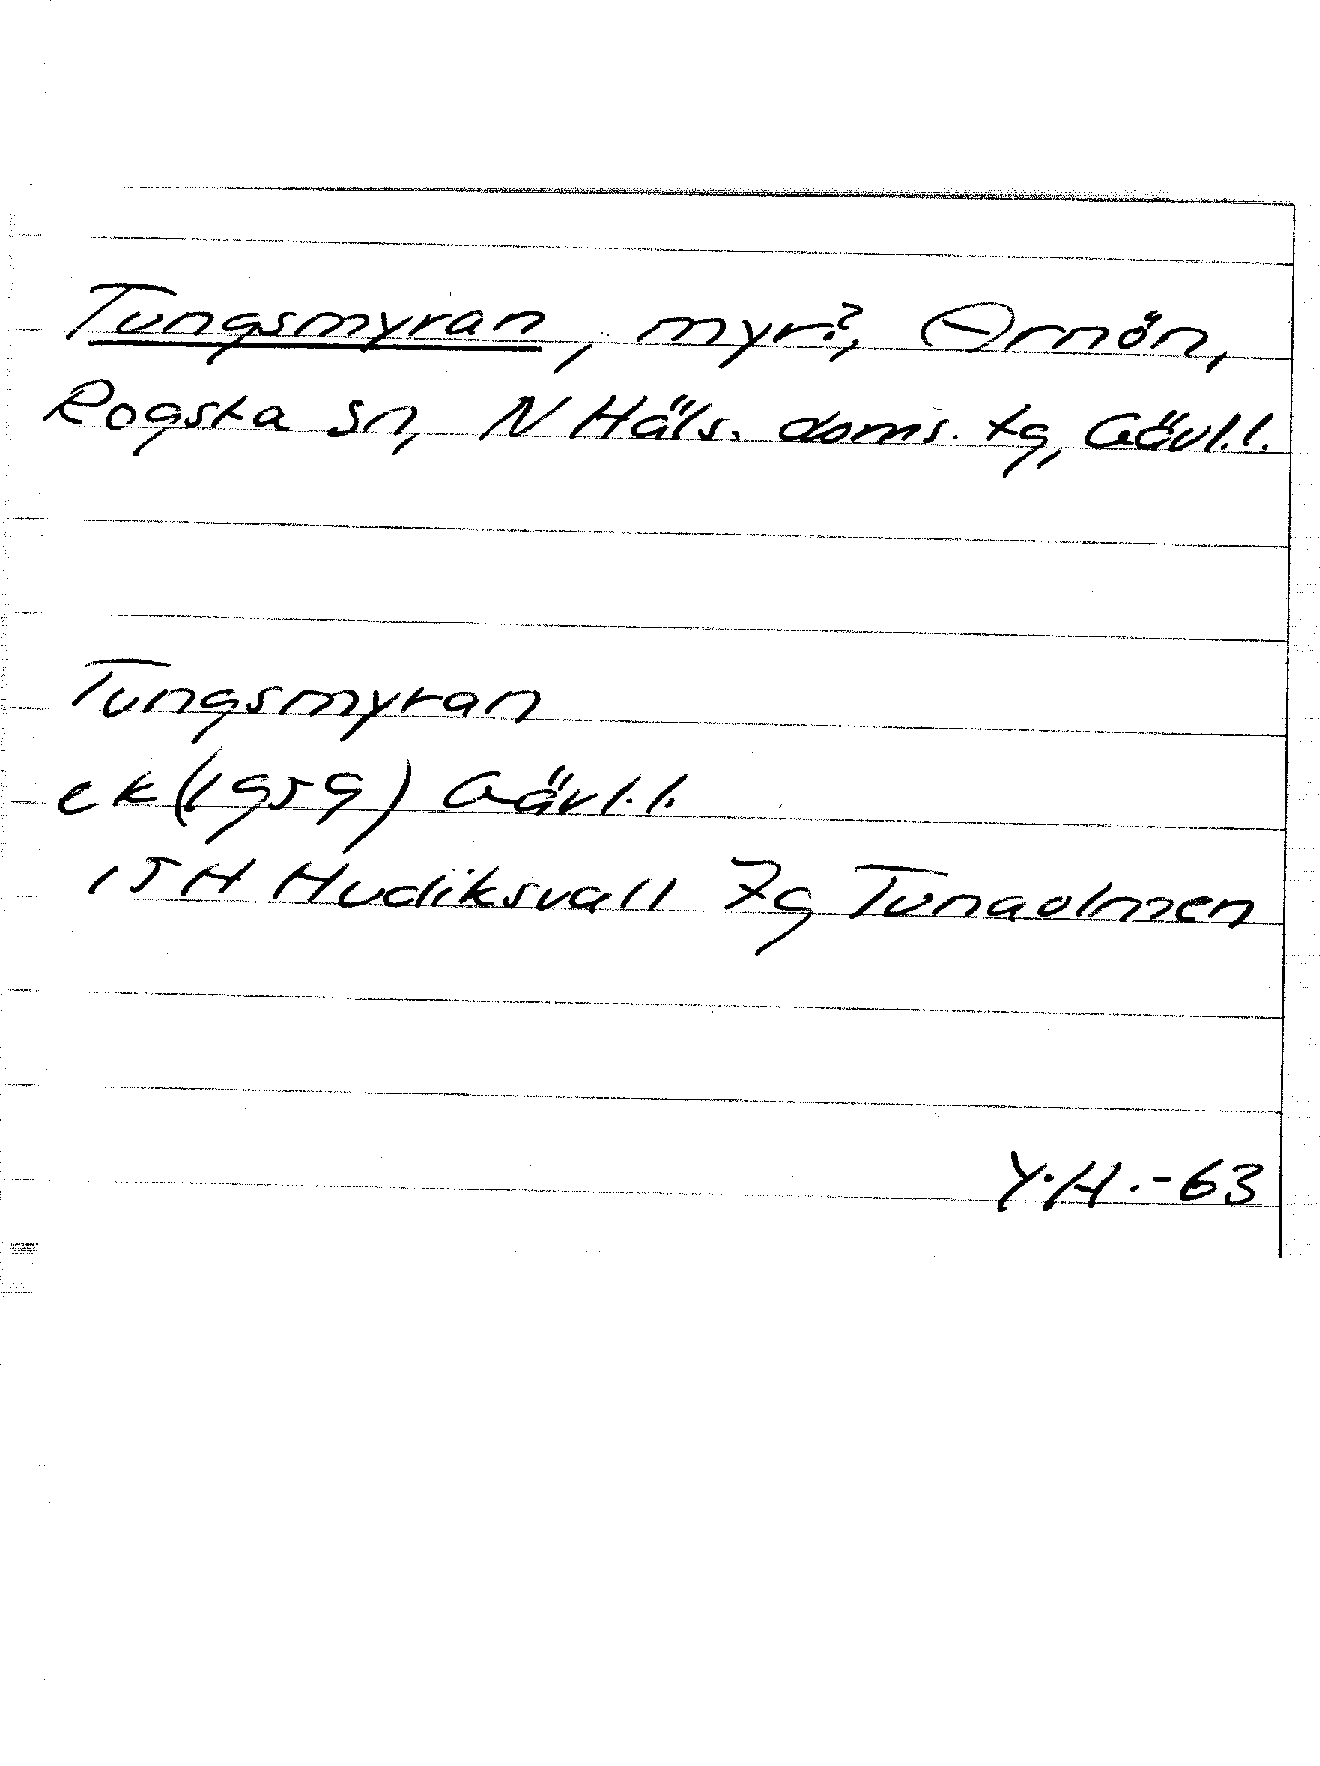 Tungsmyran, myr?, Ornön,
Rogsta sn, N Häls. doms. tg, Gävl.l.
Tungsmyran
ek (1959) Gävl.l.
15H Hudiksvall 7g Tunaolmen
Y.H.-63